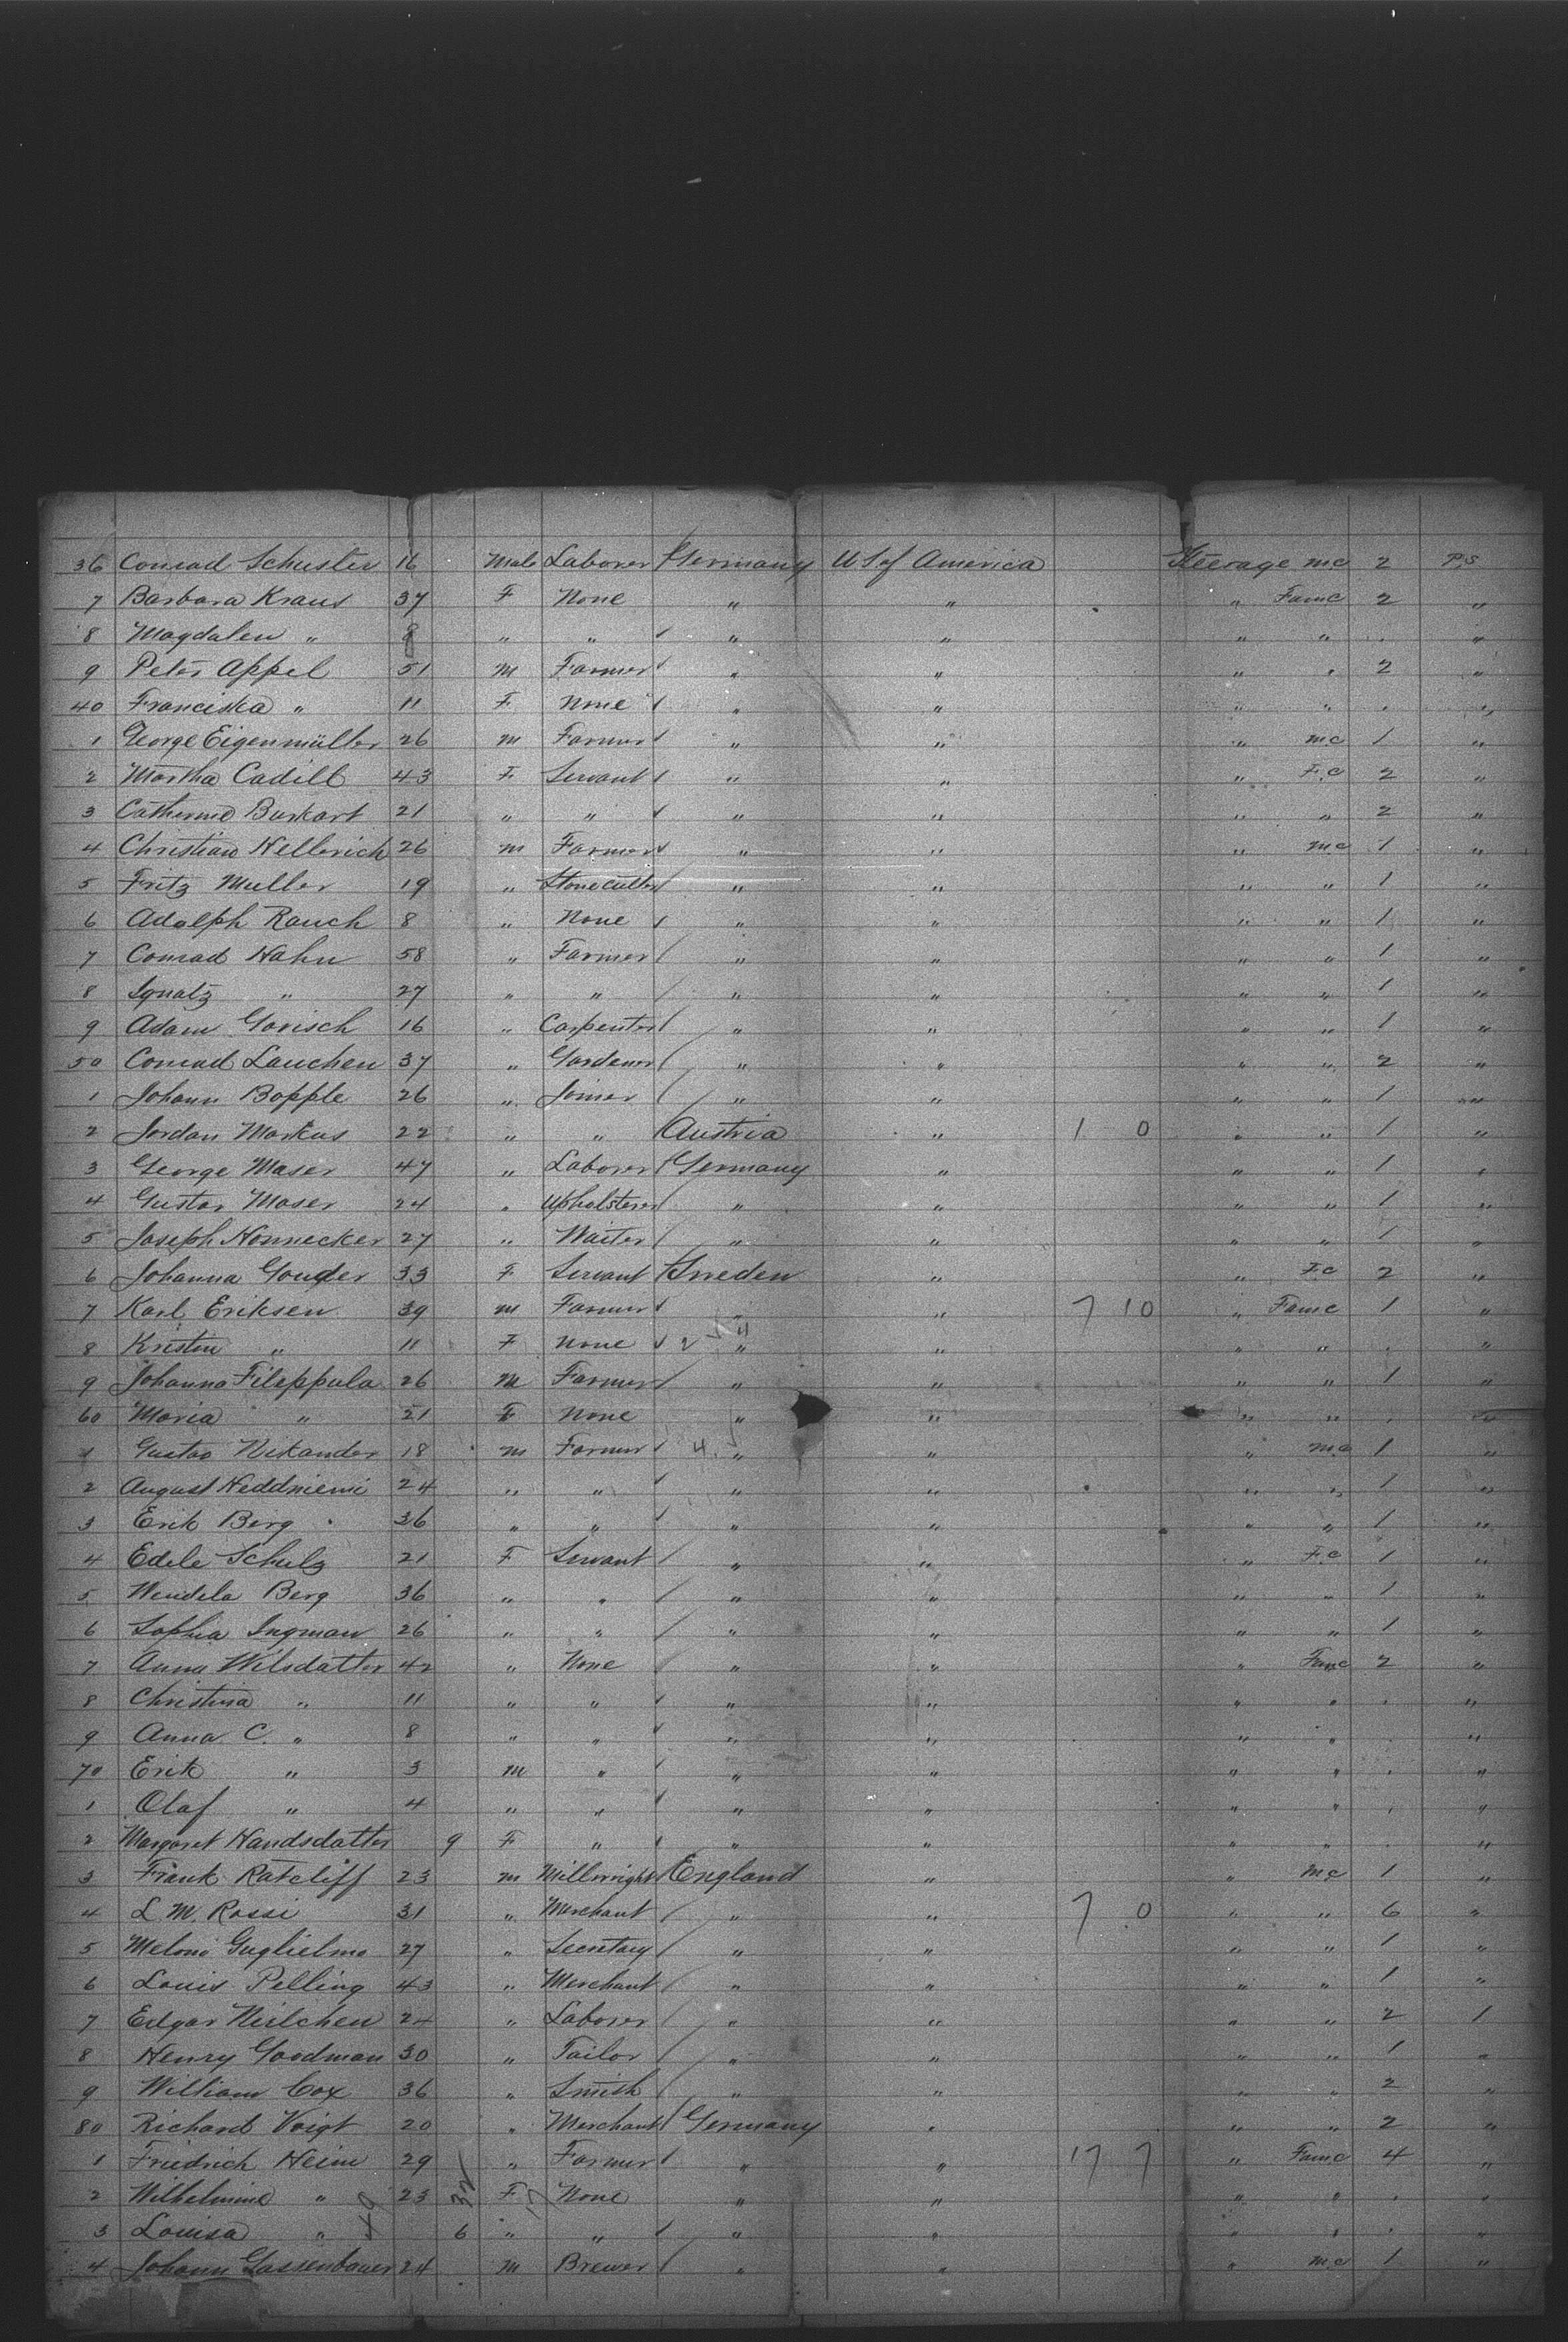 36 Conrad Schuster 16 Male Laborer Germany U S of America Steerage mc 2 P.S
7 Barbara Kraus 37 F None " " " Famc 2 "
8 Magdalen " 8 " " " " " " . "
9 Peter Appel 51 m Farmer " " " " 2 "
40 Franciska " 11 F None " " " " . "
1 George Eigenmüller 26 m Farmer " " " mc 1 "
2 Martha Cadill 43 F Servant " " " F.C 2 "
3 Catherine Burkart 21 " " " " " " 2 "
4 Christian Hellerich 26 m Farmer " " " mc 1 "
5 Fritz Muller 19 " Stonecutter " " " " 1 "
6 Adolph Rauch 8 " None " " " " 1 "
7 Conrad Hahn 58 " Farmer " " " " 1 "
8 Ignatz " 27 " " " " " " 1 "
9 Adam Gorisch 16 " Carpenter " " " " 1 "
50 Conrad Lauchen 37 " Gardener " " " " 2 "
1 Johann Bopple 26 " Joiner " " " " 1 "
2 Jordan Markus 22 " " Austria " 1 0 " " 1 "
3 George Maser 47 " Laborer Germany " " " 1 "
4 Gustav Moser 24 " Upholsterer " " " " 1 "
5 Joseph Honnecker 27 " Waiter " " " " 1 "
6 Johanna Gouder 33 F Servant Sweden " " F.C 2 "
7 Karl Eriksen 39 m Farmer " " 7 10 " Famc 1 "
8 Kristin " 11 F None 2 " " " " . "
9 Johanna Filippula 26 m Farmer " " " " 1 "
60 Maria " 21 F None " " " " . "
1 Gustav Nikander 18 m Farmer 4 " " " mc 1 "
2 August Heddniemi 24 " " " " " " 1 "
3 Erik Berg 36 " " " " " " 1 "
4 Edele Schulz 21 F Servant " " " F.C 1 "
5 Wendela Berg 36 " " " " " " 1 "
6 Sophia Ingman 26 " " " " " " 1 "
7 Anna Wilsdatter 42 " None " " " Famc 2 "
8 Christina " 11 " " " " " " . "
9 Anna C. " 8 " " " " " " "
70 Erik " 3 m " " " " " . "
1 Olaf " 4 " " " " " " . "
2 Margaret Handsdatter 9 F " " " " " . "
3 Frank Ratcliff 23 m Millwright England " " mc 1 "
4 L. M. Rossi 31 " Merchant " " 7 0 " " 6 "
5 Guglielmo 27 " Secretary " " " " 1 "
6 Louis Pelling 43 " Merchant " " " " 1 "
7 Edgar Neilchen 24 " Laborer " " " " 2 1
8 Henry Goodman 30 " Tailor " " " " 1 "
9 William Cox 36 " Smith " " " " 2 "
80 Richard Voigt 20 " Merchant Germany " " " 2 "
1 Friedrich Heim 29 " Farmer " " 17 7 " Famc 4 "
2 Wilhelmine " 23 32 F 17 None " " " " . "
3 Louisa " 49 6 " " " " " " . "
4 Johann Gassenbauer 24 m Brewer " " " mc 1 "